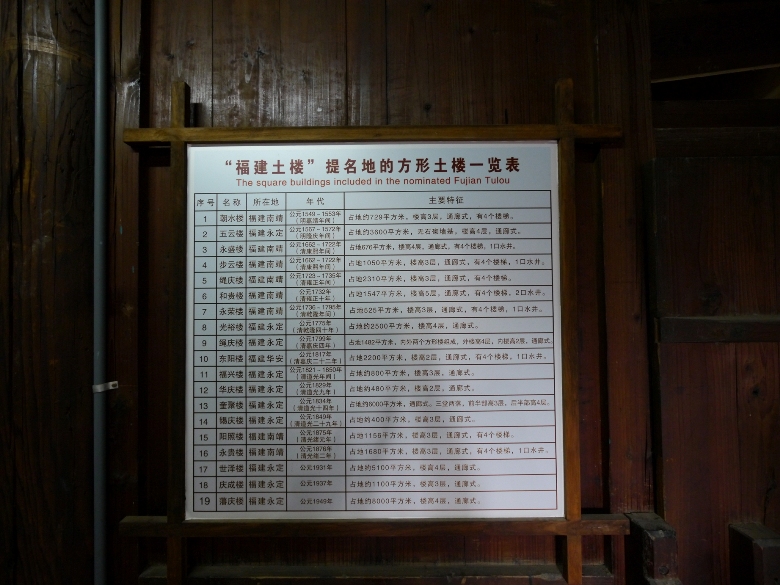 “福建土楼”提名地的方形土楼一览表
The square buildings included in the nominated Fujian Tulou
序号 名称 所在地 年代 主要特征
1 朝水楼 福建南靖 公元1549－1553年（明嘉靖年间） 占地约729平方米，楼高3层，通廊式，有4个楼梯。
2 五云楼 福建永定 公元1567－1572年（明隆庆年间） 占地约3600平方米，无石挨墙基，楼高4层，通廊式。
3 永盛楼 福建南靖 公元1662－1722年（清康熙年间） 占地676平方米，楼高4层，通廊式，有4个楼梯，1口水井。
4 步云楼 福建南靖 公元1662－1722年（清康熙年间） 占地1050平方米，楼高3层，通廊式，有4个楼梯，1口水井。
5 绳庆楼 福建南靖 公元1723－1735年（清雍正年间） 占地2310平方米，楼高3层，通廊式，有4个楼梯。
6 和贵楼 福建南靖 公元1732年（清雍正十年） 占地1547平方米，楼高5层，通廊式，有4个楼梯，2口水井。
7 永荣楼 福建南靖 公元1736－1795年（清乾隆年间） 占地525平方米，楼高3层，通廊式，有4个楼梯，1口水井。
8 光裕楼 福建永定 公元1775年（清乾隆四十年） 占地约2500平方米，楼高4层，通廊式。
9 绳庆楼 福建永定 公元1799年（清嘉庆四年） 占地1482平方米，内外两个方形楼组成，外楼高4层，内楼高2层，通廊式。
10 东阳楼 福建华安 公元1817年（清嘉庆二十二年） 占地2200平方米，楼高2层，通廊式，有4个楼梯，1口水井。
11 福兴楼 福建永定 公元1821－1850年（清道光年间） 占地约800平方米，楼高3层，通廊式。
12 华庆楼 福建永定 公元1829年（清道光九年） 占地约480平方米，楼高2层，通廊式。
13 奎聚楼 福建永定 公元1834年（清道光十四年） 占地约6000平方米，通廊式。三堂两落，前半部高3层，后半部高4层。
14 锡庆楼 福建永定 公元1849年（清道光二十九年） 占地约400平方米，楼高3层，通廊式。
15 阳照楼 福建南靖 公元1875年（清光绪元年） 占地1156平方米，楼高3层，通廊式，有4个楼梯。
16 永贵楼 福建南靖 公元1876年（清光绪二年） 占地1688平方米，楼高3层，通廊式，有4个楼梯，1口水井。
17 世泽楼 福建永定 公元1931年 占地约5100平方米，楼高4层，通廊式。
18 庆成楼 福建永定 公元1937年 占地约1100平方米，楼高3层，通廊式。
19 庆楼 福建永定 公元1949年 占地约8000平方米，楼高4层，通廊式。